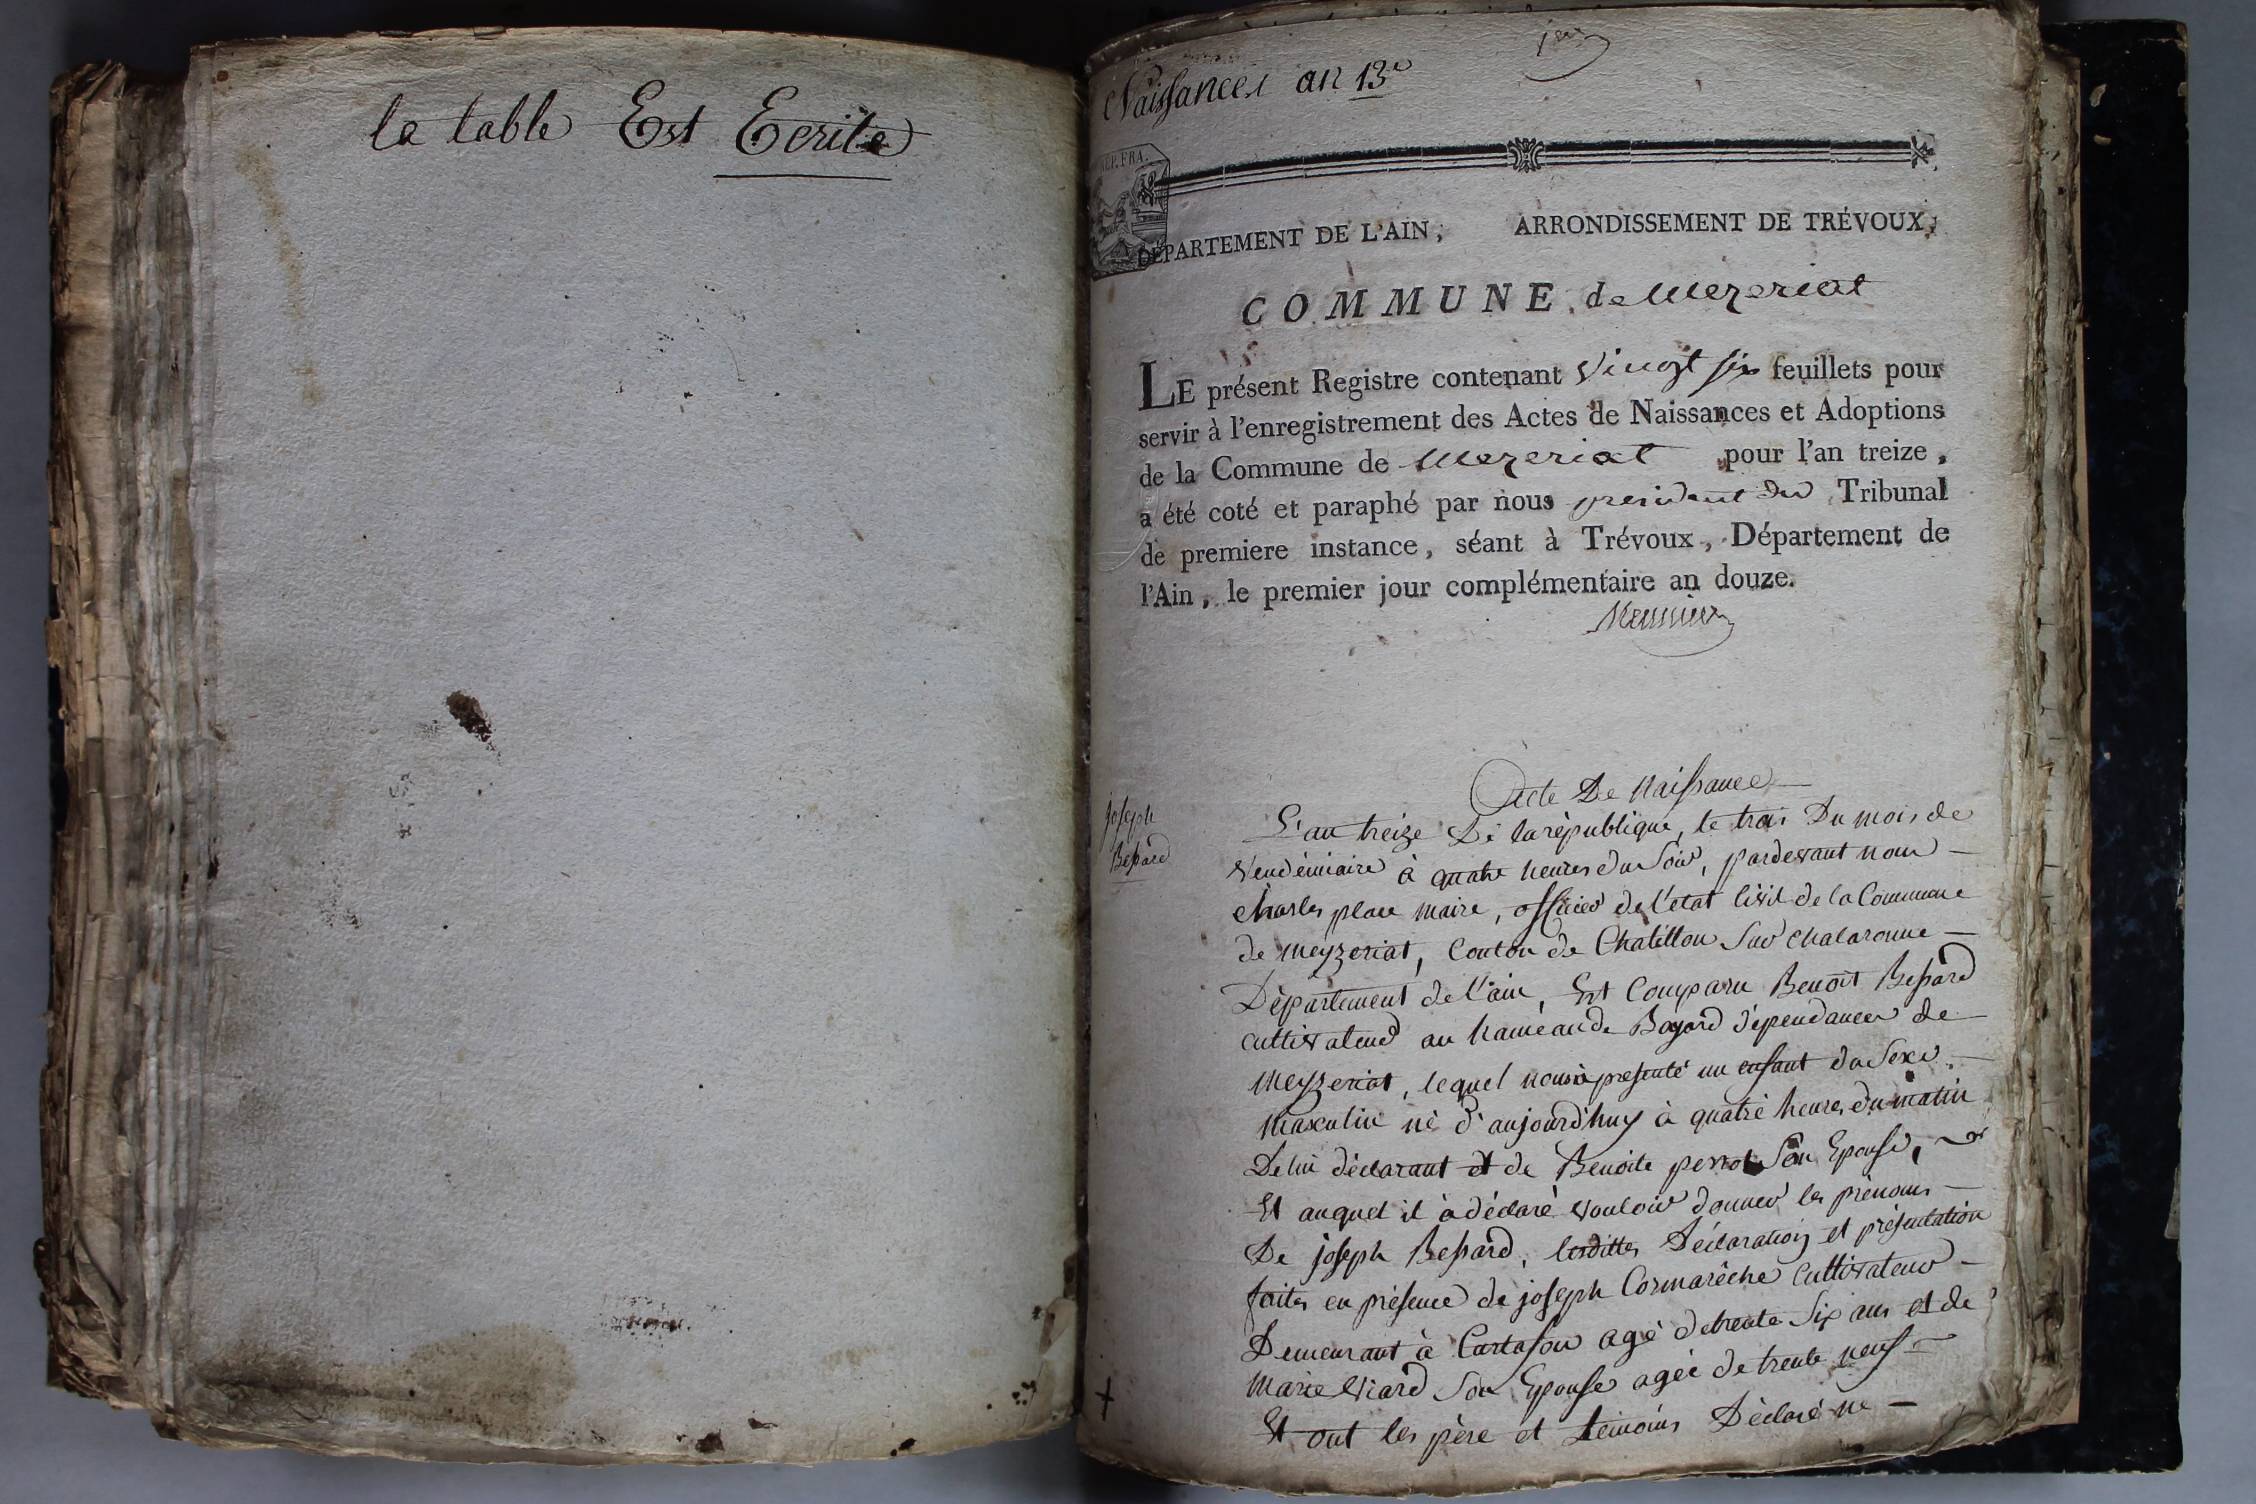 la table Est Ecrite
1er
Naissances an 13e
REP. FRA.
DÉPARTEMENT DE L'AIN, ARRONDISSEMENT DE TRÉVOUX,
COMMUNE de Mezeriat
LE présent Registre contenant Vingt six feuillets pour
servir à l'enregistrement des Actes de Naissances et Adoptions
de la Commune de Mezeriat pour l'an treize,
a été coté et paraphé par nous president du Tribunal
de premiere instance, séant à Trévoux, Département de
l'Ain, le premier jour complémentaire an douze.
joseph
Bessard
Acte De Naissance
L'an treize De la république, le trois Du mois de
Vendémiaire à quatre heures du Soir, pardevant nous
charles place maire, officier de l'état Civil de la Commune
de Meyzeriat, Canton de Chatillon Sur chalaronne
Département de l'ain, Est Comparu Benoit Bessard
cultivateur au hameau de Bayard dépendances de
Meyzeriat, lequel nous à présenté un enfant du Sexe
masculin né d'aujourd'huy à quatre heures du matin
De lui déclarant et de Benoite perrot Son Epouse,
Et auquel il à déclaré vouloir donner les prénoms
De joseph Bessard, lesdittes Déclaration et présentation
faites en présence de joseph Cormarêche cultivateur
Demeurant à Cartafou agé de trente Six ans et de
Marie Viard Son Epouse agée de trente neuf
Et ont les père et témoins Déclaré ne